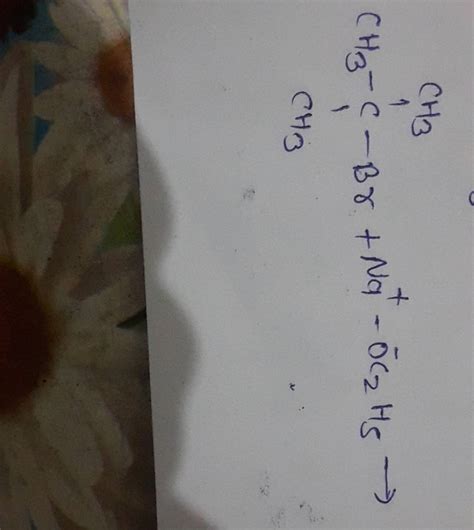 CH3
CH3-C-Br + Na+ -ŌC2H5 →
CH3